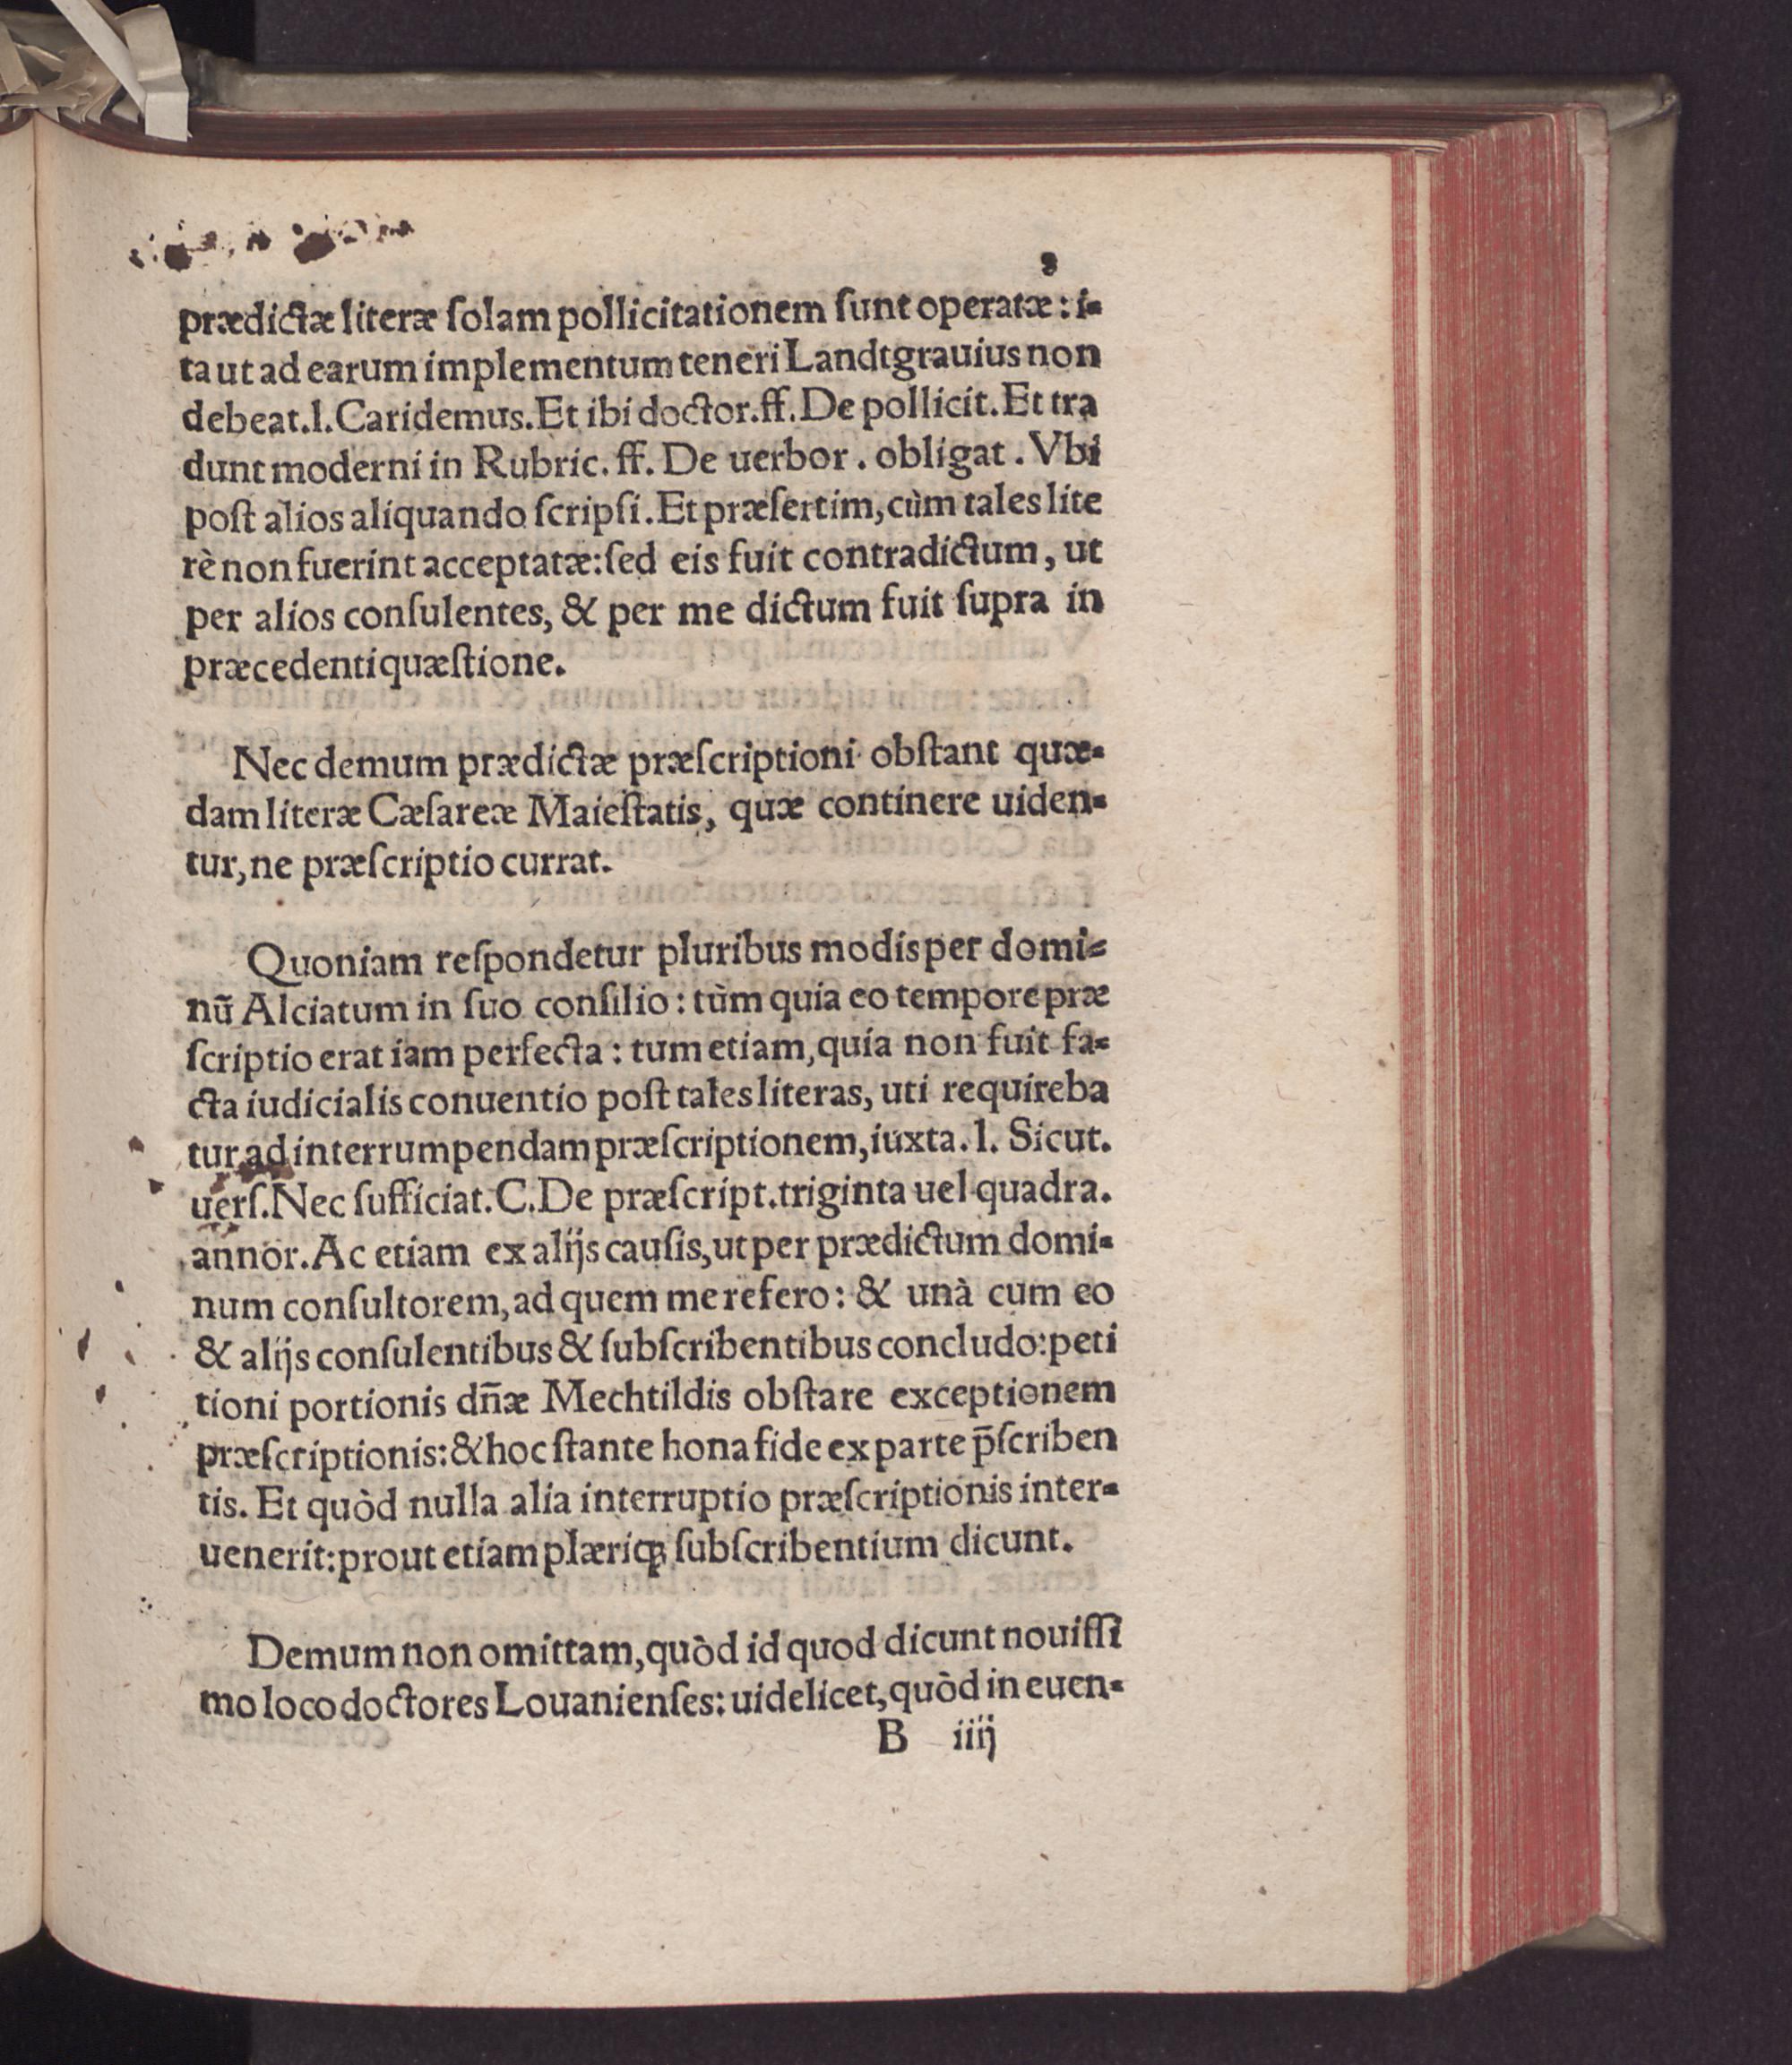 9
prædictæ literæ ſolam pollicitationem ſunt operatæ: i-
ta ut ad earum implementum teneri Landtgrauius non
debeat. l. Caridemus. Et ibi doctor. ff. De pollicit. Et tra
dunt moderni in Rubric. ff. De uerbor. obligat. Vbi
poſt alios aliquando ſcripſi. Et præſertim, cùm tales lite
rè non fuerint acceptatæ: ſed eis fuit contradictum, ut
per alios conſulentes, & per me dictum fuit ſupra in
præcedenti quæſtione.
Nec demum prædictæ præſcriptioni obſtant quæ-
dam literæ Cæſareæ Maieſtatis, quæ continere uiden-
tur, ne præſcriptio currat.
Quoniam reſpondetur pluribus modis per domi-
nū Alciatum in ſuo conſilio: tùm quia eo tempore præ
ſcriptio erat iam perfecta: tum etiam, quia non fuit fa-
cta iudicialis conuentio poſt tales literas, uti requireba
tur ad interrumpendam præſcriptionem, iuxta. l. Sicut.
uerſ. Nec ſufficiat. C. De præſcript. triginta uel quadra.
annor. Ac etiam ex alijs cauſis, ut per prædictum domi-
num conſultorem, ad quem me refero: & unà cum eo
& alijs conſulentibus & ſubſcribentibus concludo: peti
tioni portionis dn̄æ Mechtildis obſtare exceptionem
præſcriptionis: & hoc ſtante hona fide ex parte p̄ſcriben
tis. Et quòd nulla alia interruptio præſcriptionis inter-
uenerit: prout etiam plæriqꝫ ſubſcribentium dicunt.
Demum non omittam, quòd id quod dicunt nouiſſi
mo loco doctores Louanienſes: uidelicet, quòd in euen-
B iiij